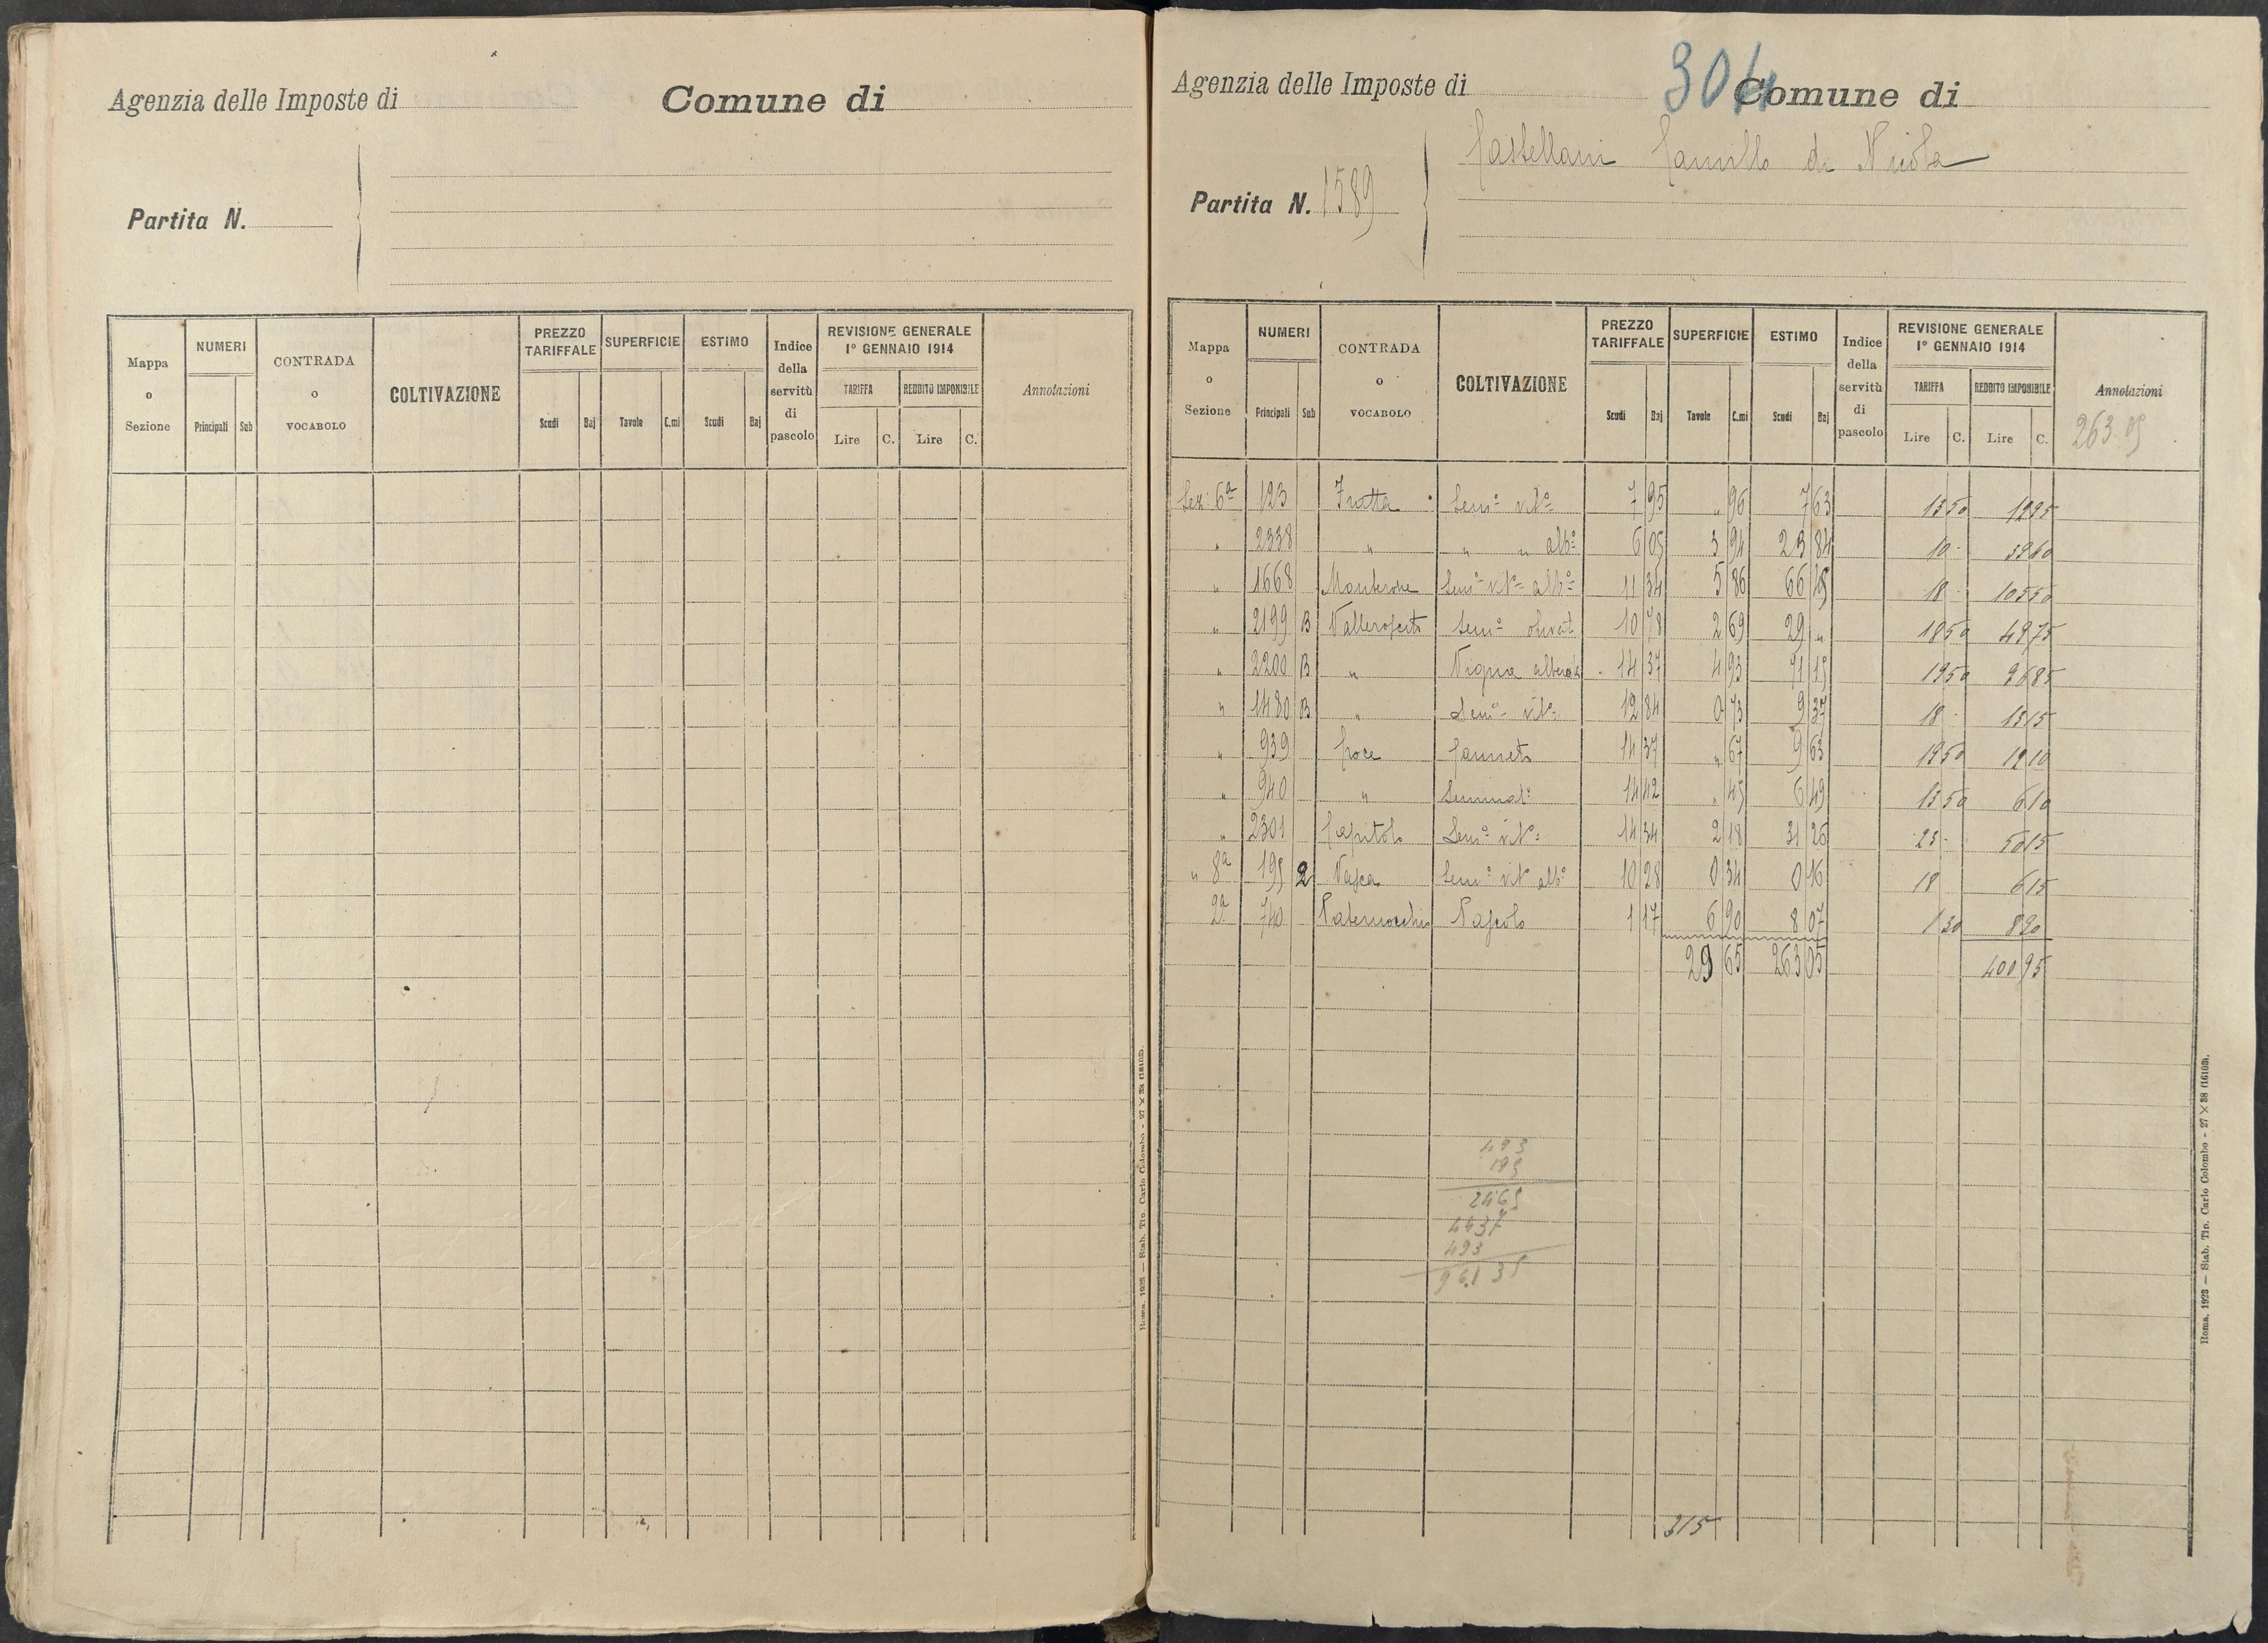 Agenzia delle Imposte di Comune di
Partita N.
Mappa o Sezione NUMERI Principali Sub CONTRADA o VOCABOLO COLTIVAZIONE PREZZO TARIFFALE Scudi Baj SUPERFICIE Tavole C.mi ESTIMO Scudi Baj Indice della servitù di pascolo REVISIONE GENERALE 1° GENNAIO 1914 TARIFFA Lire C. REDDITO IMPONIBILE Lire C. Annotazioni
Agenzia delle Imposte di 304 Comune di
Castellani Camillo di Nicola
Partita N. 1589
Mappa o Sezione NUMERI Principali Sub CONTRADA o VOCABOLO COLTIVAZIONE PREZZO TARIFFALE Scudi Baj SUPERFICIE Tavole C.mi ESTIMO Scudi Baj Indice della servitù di pascolo REVISIONE GENERALE 1° GENNAIO 1914 TARIFFA Lire C. REDDITO IMPONIBILE Lire C. Annotazioni
263.05
Sez: 6a 123 Sem° vit° 7 95 " 96 7 63 13 50 12 95
" 2338 " " " alb° 6 05 3 94 23 84 10 - 39 40
" 1668 Monterone Sem° vit° alb° 11 34 5 86 66 45 18 - 105 50
" 2199 B Sem° olivat 10 78 2 69 29 " 18 50 49 75
" 2200 B " Vigna alberata 14 37 4 93 71 15 19 50 96 85
" 1480 B " Sem° vit° 12 84 0 73 9 37 18 - 13 15
" 939 Foce Canneto 14 37 " 67 9 63 19 50 12 10
" 940 " Seminat° 14 42 " 45 6 49 13 50 6 10
" 2301 Capitolo Sem° vit° 14 34 2 18 31 26 23 - 50 15
" 8a 195 2 Sem° vit° alb° 10 28 0 34 0 16 18 6 15
2a 740 Paternocchio Pascolo 1 17 6 90 8 07 1 30 8 90
29 65 263 05 400 95
493
195
2465
4437
493
961 35
315
Roma, 1923 — Stab. Tip. Carlo Colombo - 27 × 38 (16103).